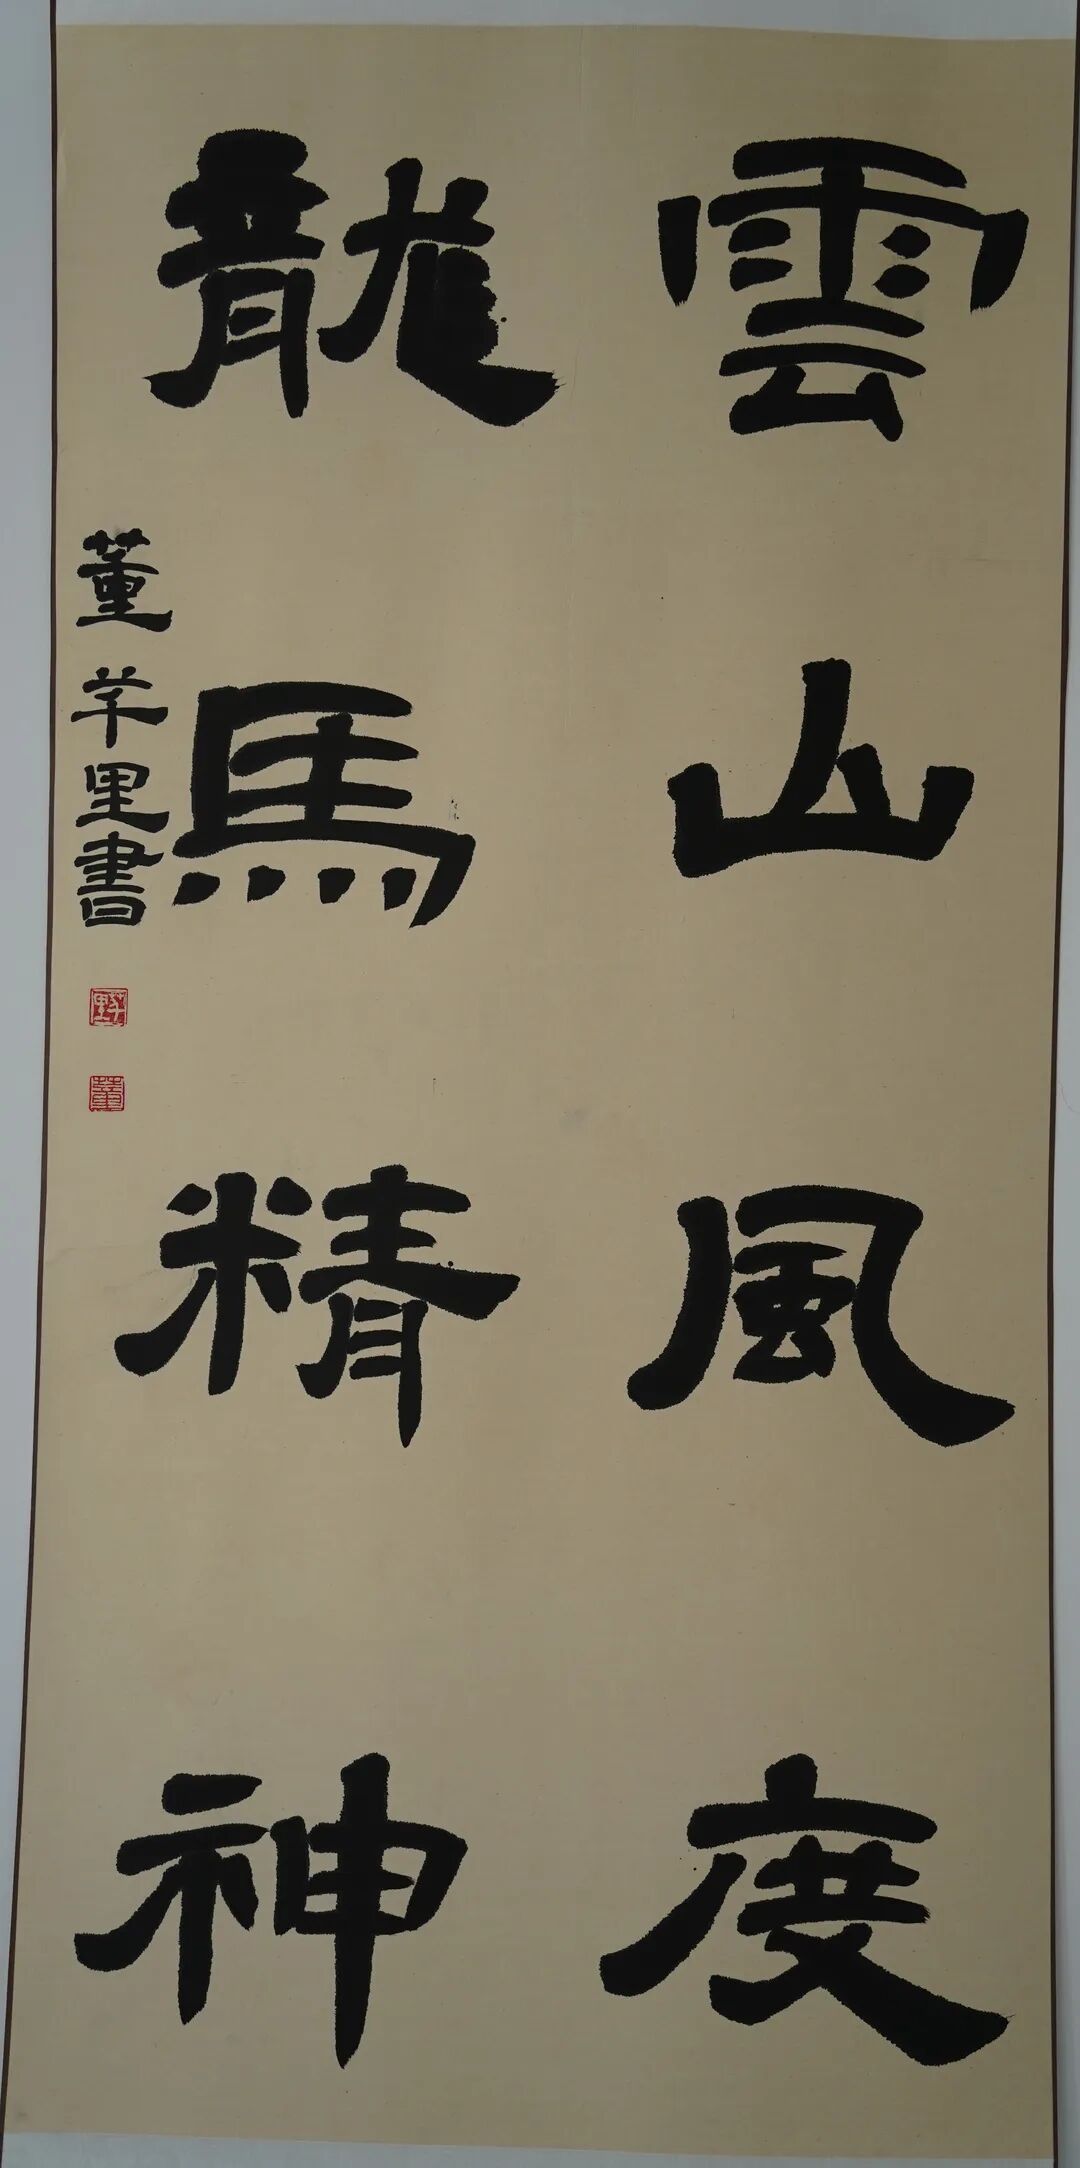 雲山風度
龍馬精神
董芊里書